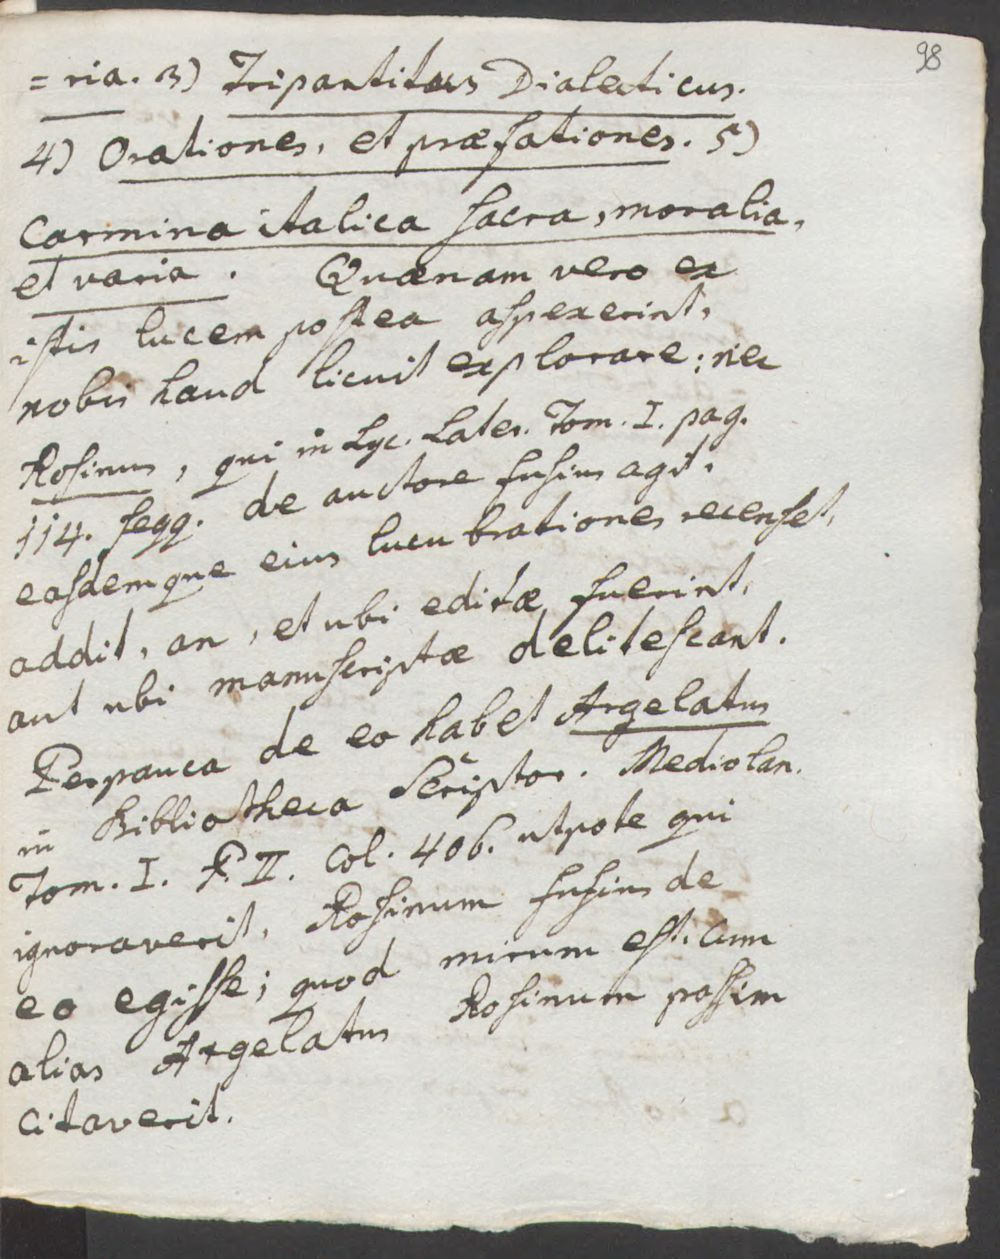 98
= ria. 3) Tripartitus Dialecticus.
4) Orationes, et præfationes. 5)
Carmina italica sacra, moralia,
et varia. Quænam vero ex
istis lucem postea aspexerint,
nobis haud licuit explorare; nec
Rosinus, qui in Lyc. Later. Tom. I. pag.
114. seqq. de auctore fusius agit,
easdemque eius lucubrationes recenset,
addit, an, et ubi editæ fuerint,
aut ubi manuscriptæ delitescant.
Perpauca de eo habet Argelatus
in Bibliotheca Scriptor. Mediolan.
Tom. I. P. II. Col. 406. utpote qui
ignoraverit, Rosinum fusius de
eo egisse; quod mirum est. cum
alias Argelatus Rosinum passim
citaverit.